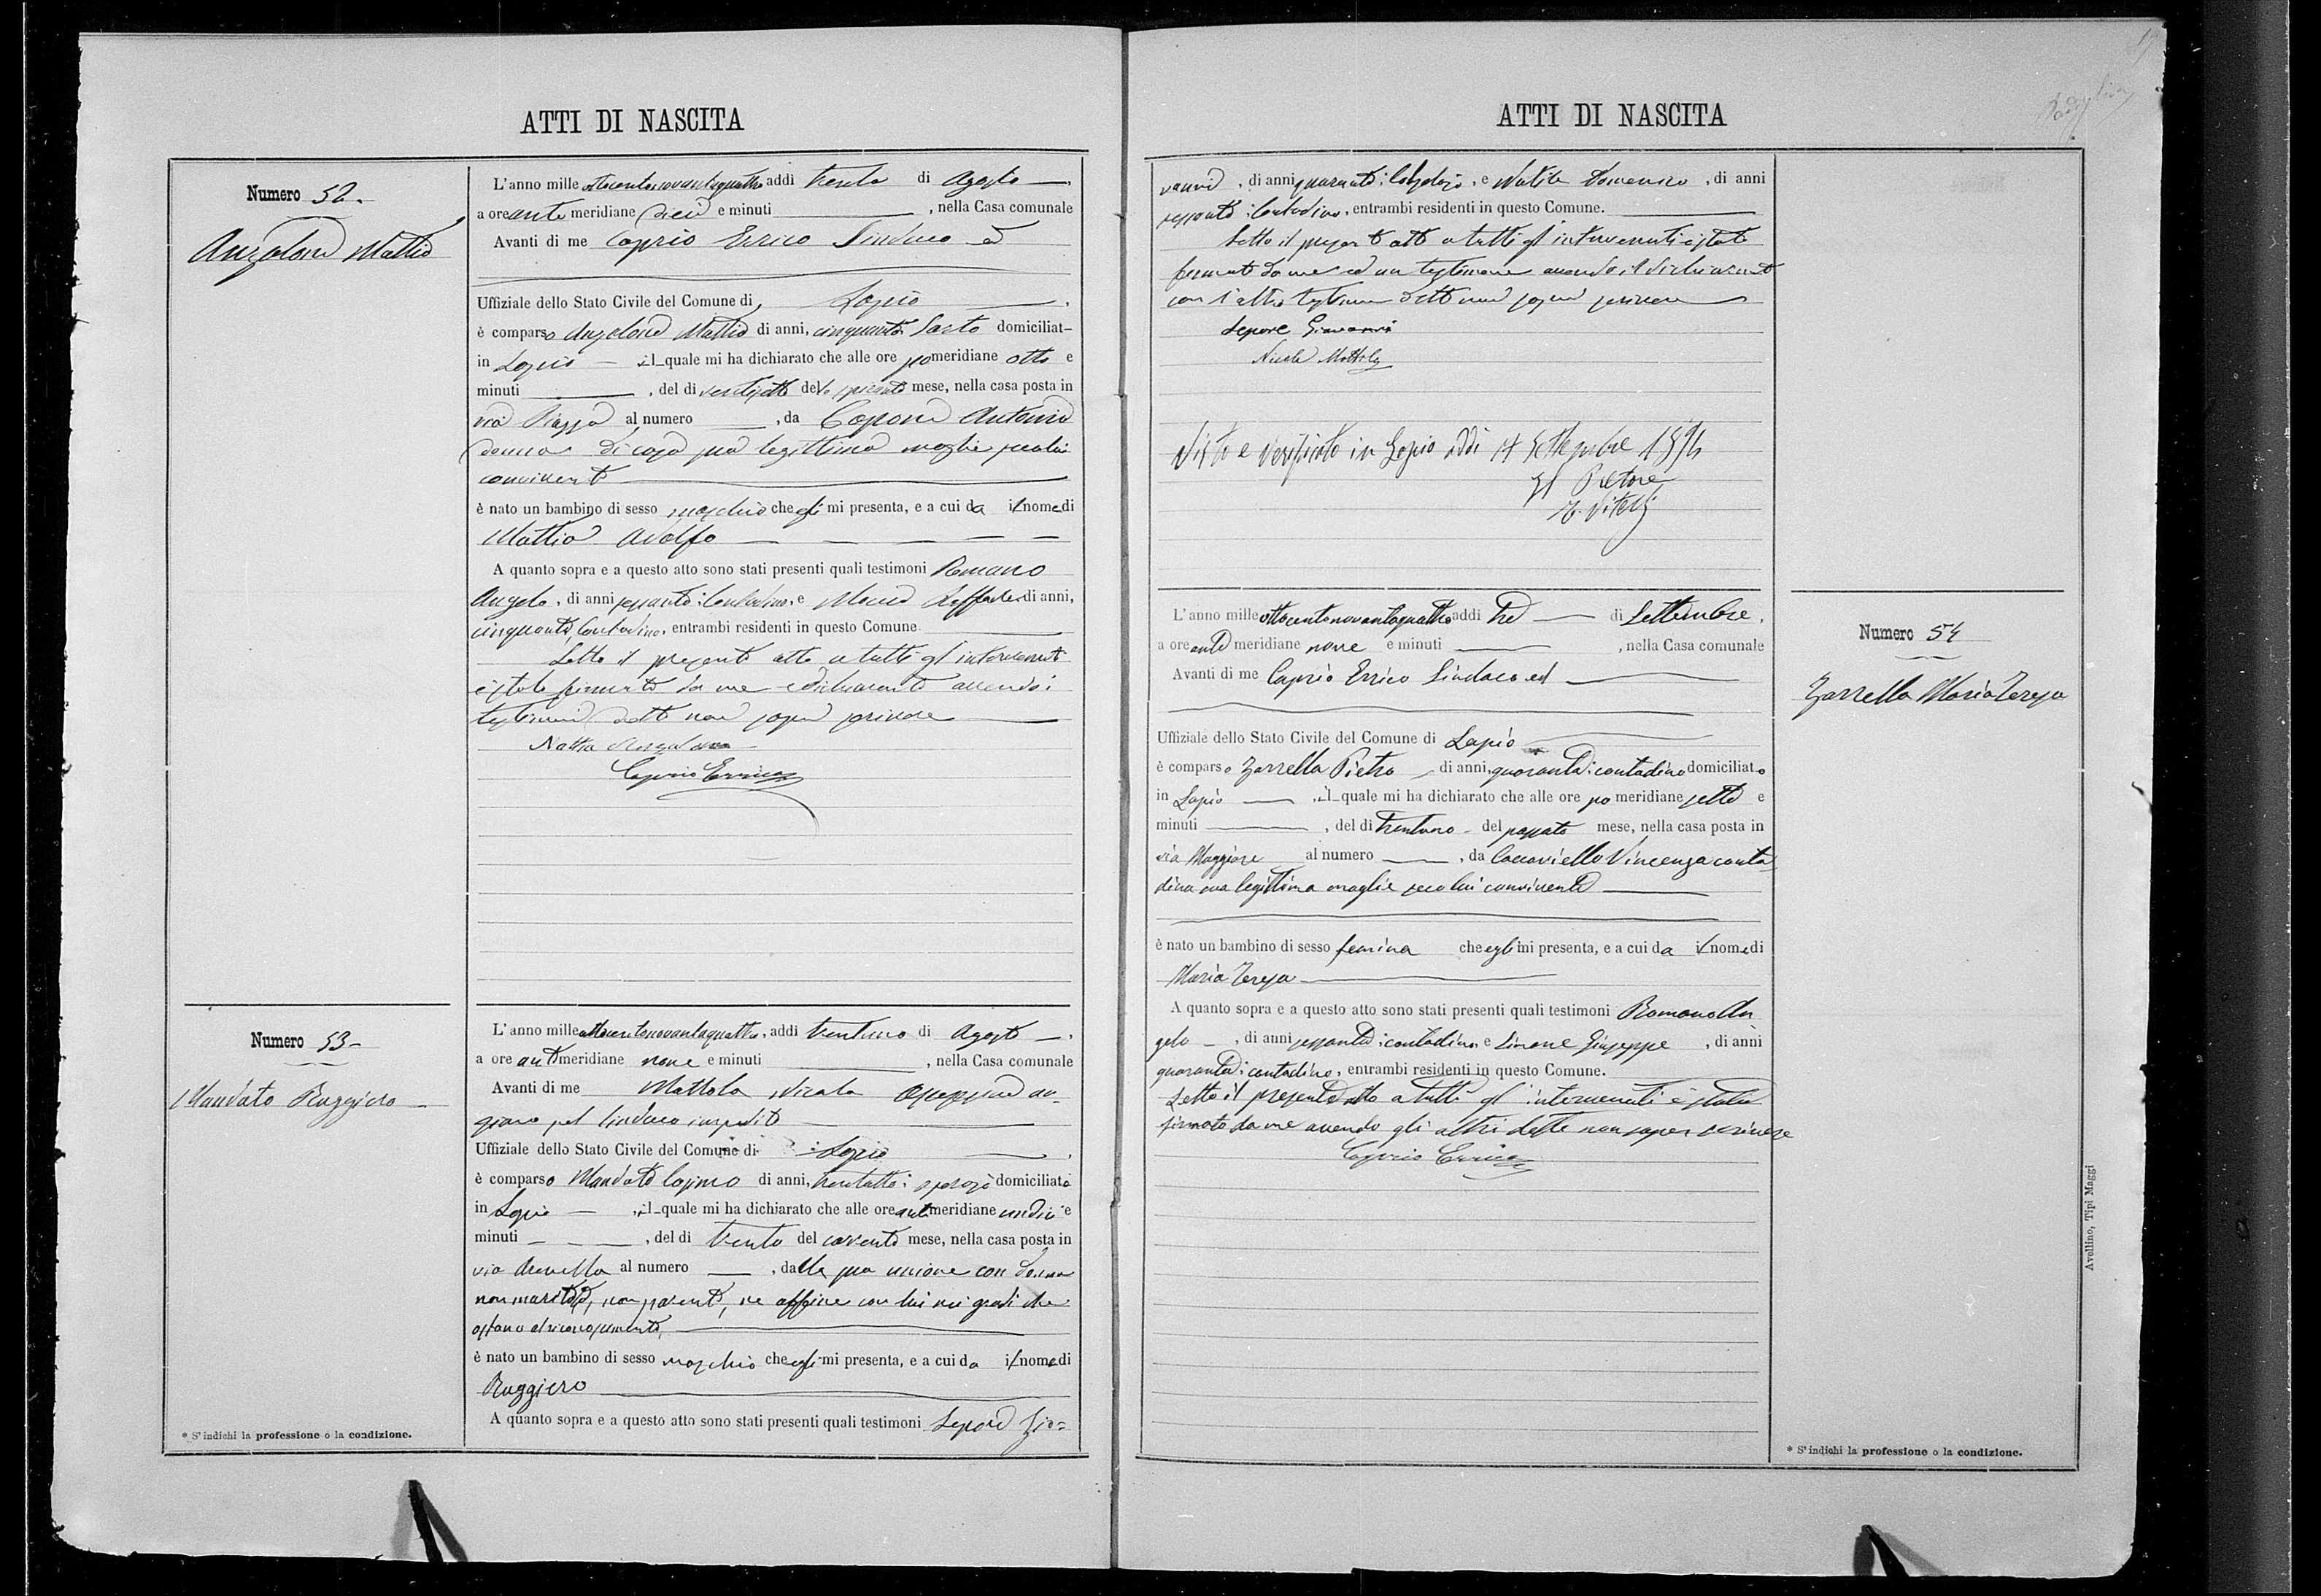 ATTI DI NASCITA
Numero 52.
Anzalone Mattia
L'anno mille ottocentonovantaquattro addì trenta di Agosto
a ore ante meridiane dieci e minuti , nella Casa comunale
Avanti di me Caprio Errico Sindaco ed
Uffiziale dello Stato Civile del Comune di Lapio
è comparso Anzalone Mattia di anni, cinquanta Sarto domiciliat-
in Lapio il quale mi ha dichiarato che alle ore pomeridiane otto e
minuti , del dì ventisette dello spirante mese, nella casa posta in
via Piazza al numero , da Capone Antonia
donna di casa sua legittima moglie secolui
convivente
è nato un bambino di sesso maschio che egli mi presenta, e a cui da il nome di
Mattia Adolfo
A quanto sopra e a questo atto sono stati presenti quali testimoni Romano
Angelo, di anni sessanta: Contadino, e di anni,
cinquanta, Contadino, entrambi residenti in questo Comune
Letto il presente atto a tutti gl'intervenuti
è stato firmato da me e dichiarante avendo i
testimoni detto non saper scrivere
Mattia Anzalone
Caprio Errico
Numero 53-
Mandato Ruggiero
L'anno mille ottocentonovantaquattro, addì trentuno di Agosto
a ore antimeridiane nove e minuti , nella Casa comunale
Avanti di me Mattola Nicola Assessore an-
ziano pel Sindaco impedito
Uffiziale dello Stato Civile del Comune di Lapio
è comparso Mandato Cosimo di anni, trentotto: domiciliato
in Lapio , il quale mi ha dichiarato che alle ore antimeridiane undici e
minuti , del dì trenta del corrente mese, nella casa posta in
via al numero , dalla sua unione con donna
non maritata, non parente, ne affine con lui nei gradi che
ostano al riconoscimento,
è nato un bambino di sesso maschio che egli mi presenta, e a cui da il nome di
Ruggiero
A quanto sopra e a questo atto sono stati presenti quali testimoni Lepore Gio=
* S'indichi la professione o la condizione.
ATTI DI NASCITA
vanni, di anni quaranta: Calzolajo, e Domenico, di anni
sessanta: Contadino, entrambi residenti in questo Comune.
Letto il presente atto a tutti gl'intervenuti è stato
firmato da me ed un testimone avendo il dichiarante
con l'altro testimone detto non saper scrivere
Lepore Giovanni
Nicola Mattola
Visto e verificato in Lapio addì 17 Settembre 1894
Il Pretore
Vitelli
L'anno mille ottocentonovantaquattro addì tre di Settembre,
a ore ante meridiane nove e minuti , nella Casa comunale
Avanti di me Caprio Errico Sindaco ed
Uffiziale dello Stato Civile del Comune di Lapio
è comparso Zarrella Pietro di anni, quaranta: contadino domiciliato
in Lapio , il quale mi ha dichiarato che alle ore pomeridiane sette e
minuti , del dì trentuno del passato mese, nella casa posta in
via Maggiore al numero , da Caccaviello Vincenza conta-
dina sua legittima moglie seco lui convivente
è nato un bambino di sesso femina che egli mi presenta, e a cui da il nome di
Maria Teresa
A quanto sopra e a questo atto sono stati presenti quali testimoni Romano An
gelo , di anni sessanta: contadino, e Simone Giuseppe , di anni
quaranta: contadino, entrambi residenti in questo Comune.
Letto il presente atto a tutti gl'intervenuti è stato
firmato da me avendo gli altri detto non saper scrivere
Caprio Errico
Numero 54
Zarrella Maria Teresa
Avellino, Tipi Maggi
* S'indichi la professione o la condizione.